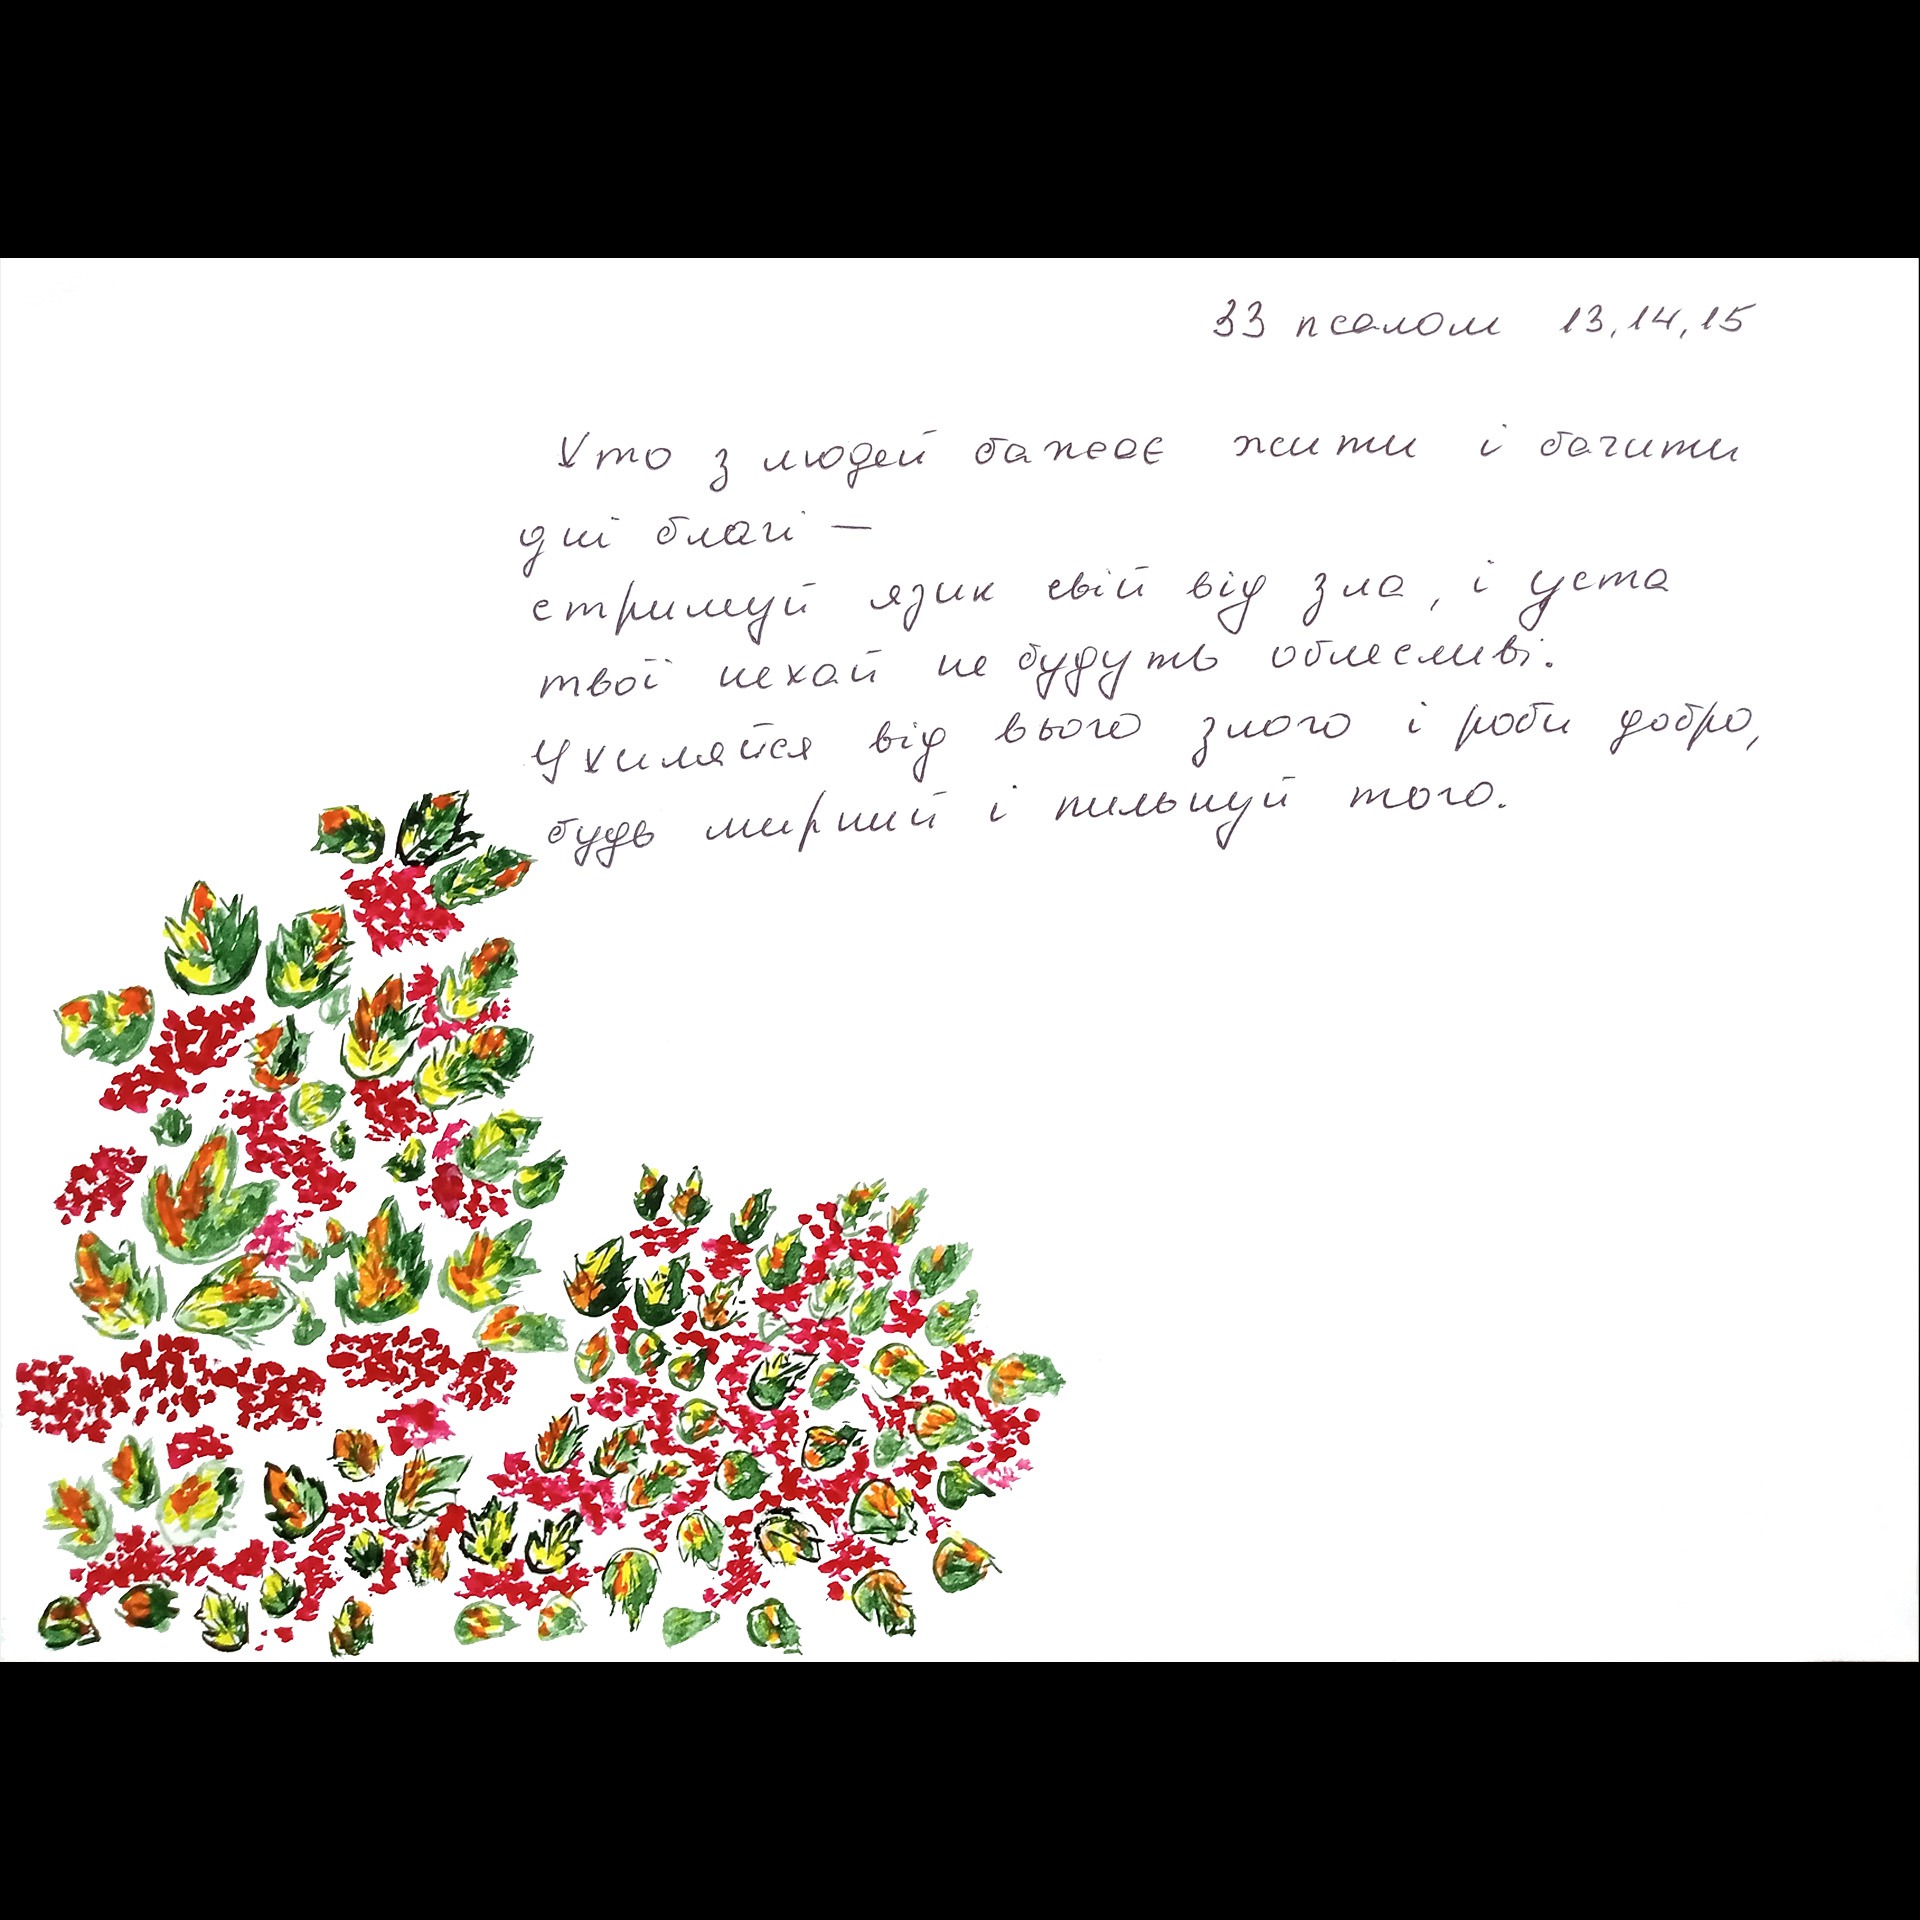 33 псалом 13,14,15
Хто з людей бажає жити і бачити
дні благі —
стримуй язик свій від зла, і уста
твої нехай не будуть облесливі.
Ухиляйся від вього злого і роби добро,
будь мирний і пильнуй того.